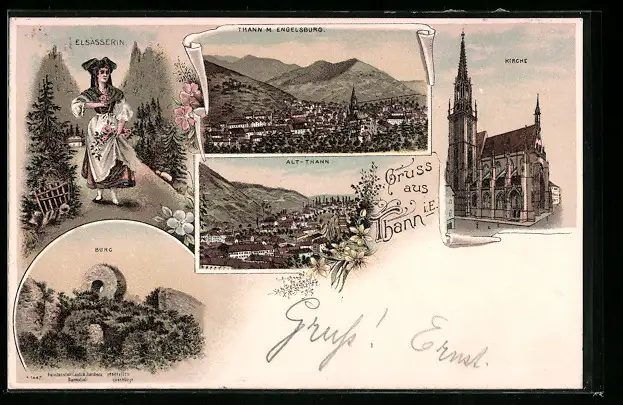 ELSÄSSERIN.
THANN M. ENGELSBURG.
KIRCHE
ALT-THANN
Gruss
aus
Thann i. E.
BURG
Gruß! Ernst.